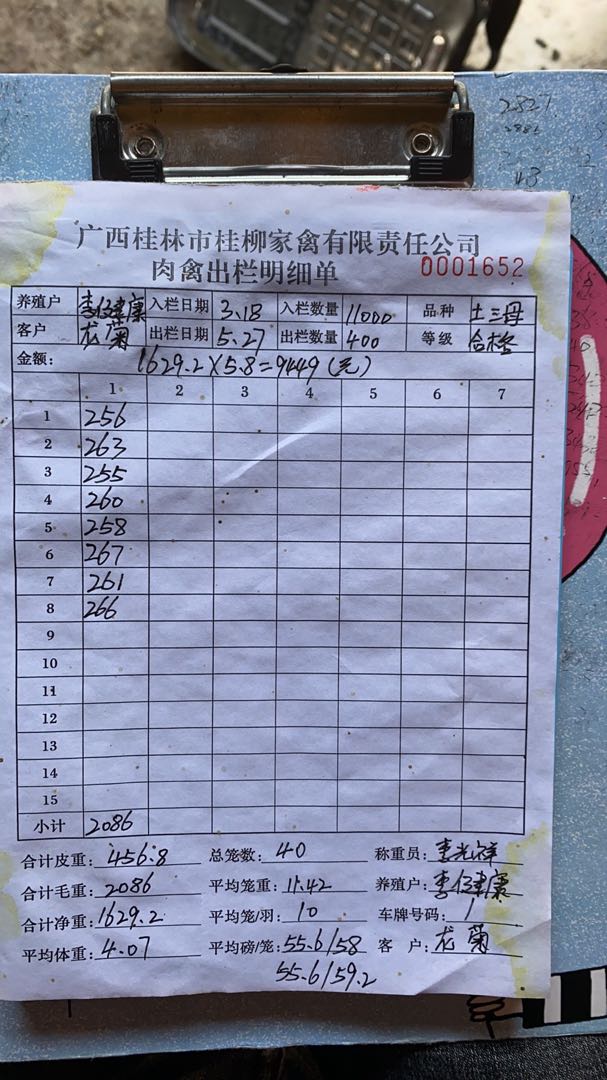 广西桂林市桂柳家禽有限责任公司
肉禽出栏明细单 0001652
养殖户 李保健康 入栏日期 3.18 入栏数量 11000 品种 土三母
客户 龙菊 出栏日期 5.27 出栏数量 400 等级 合格
金额: 1629.2×5.8=9449(元)
1 2 3 4 5 6 7
1 256
2 263
3 255
4 260
5 258
6 267
7 261
8 266
9
10
11
12
13
14
15
小计 2086
合计皮重: 456.8 总笼数: 40 称重员: 李光祥
合计毛重: 2086 平均笼重: 11.42 养殖户: 李保健康
合计净重: 1629.2 平均笼/羽: 10 车牌号码: 1
平均体重: 4.07 平均磅/笼: 55.6/58 客户: 龙菊
55.6/59.2